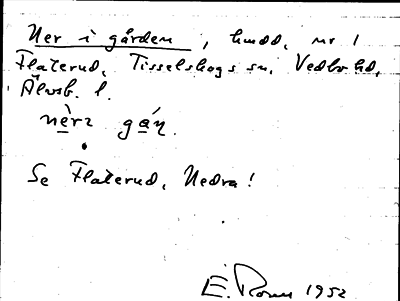 Ner i gården, hmdd, nr 1
Flaterud, Tisselskogs sn, Vedbo hd,
Älvsb. l.
nèrɪ gáɳ.
Se Flaterud, Nedra!
E. 1952